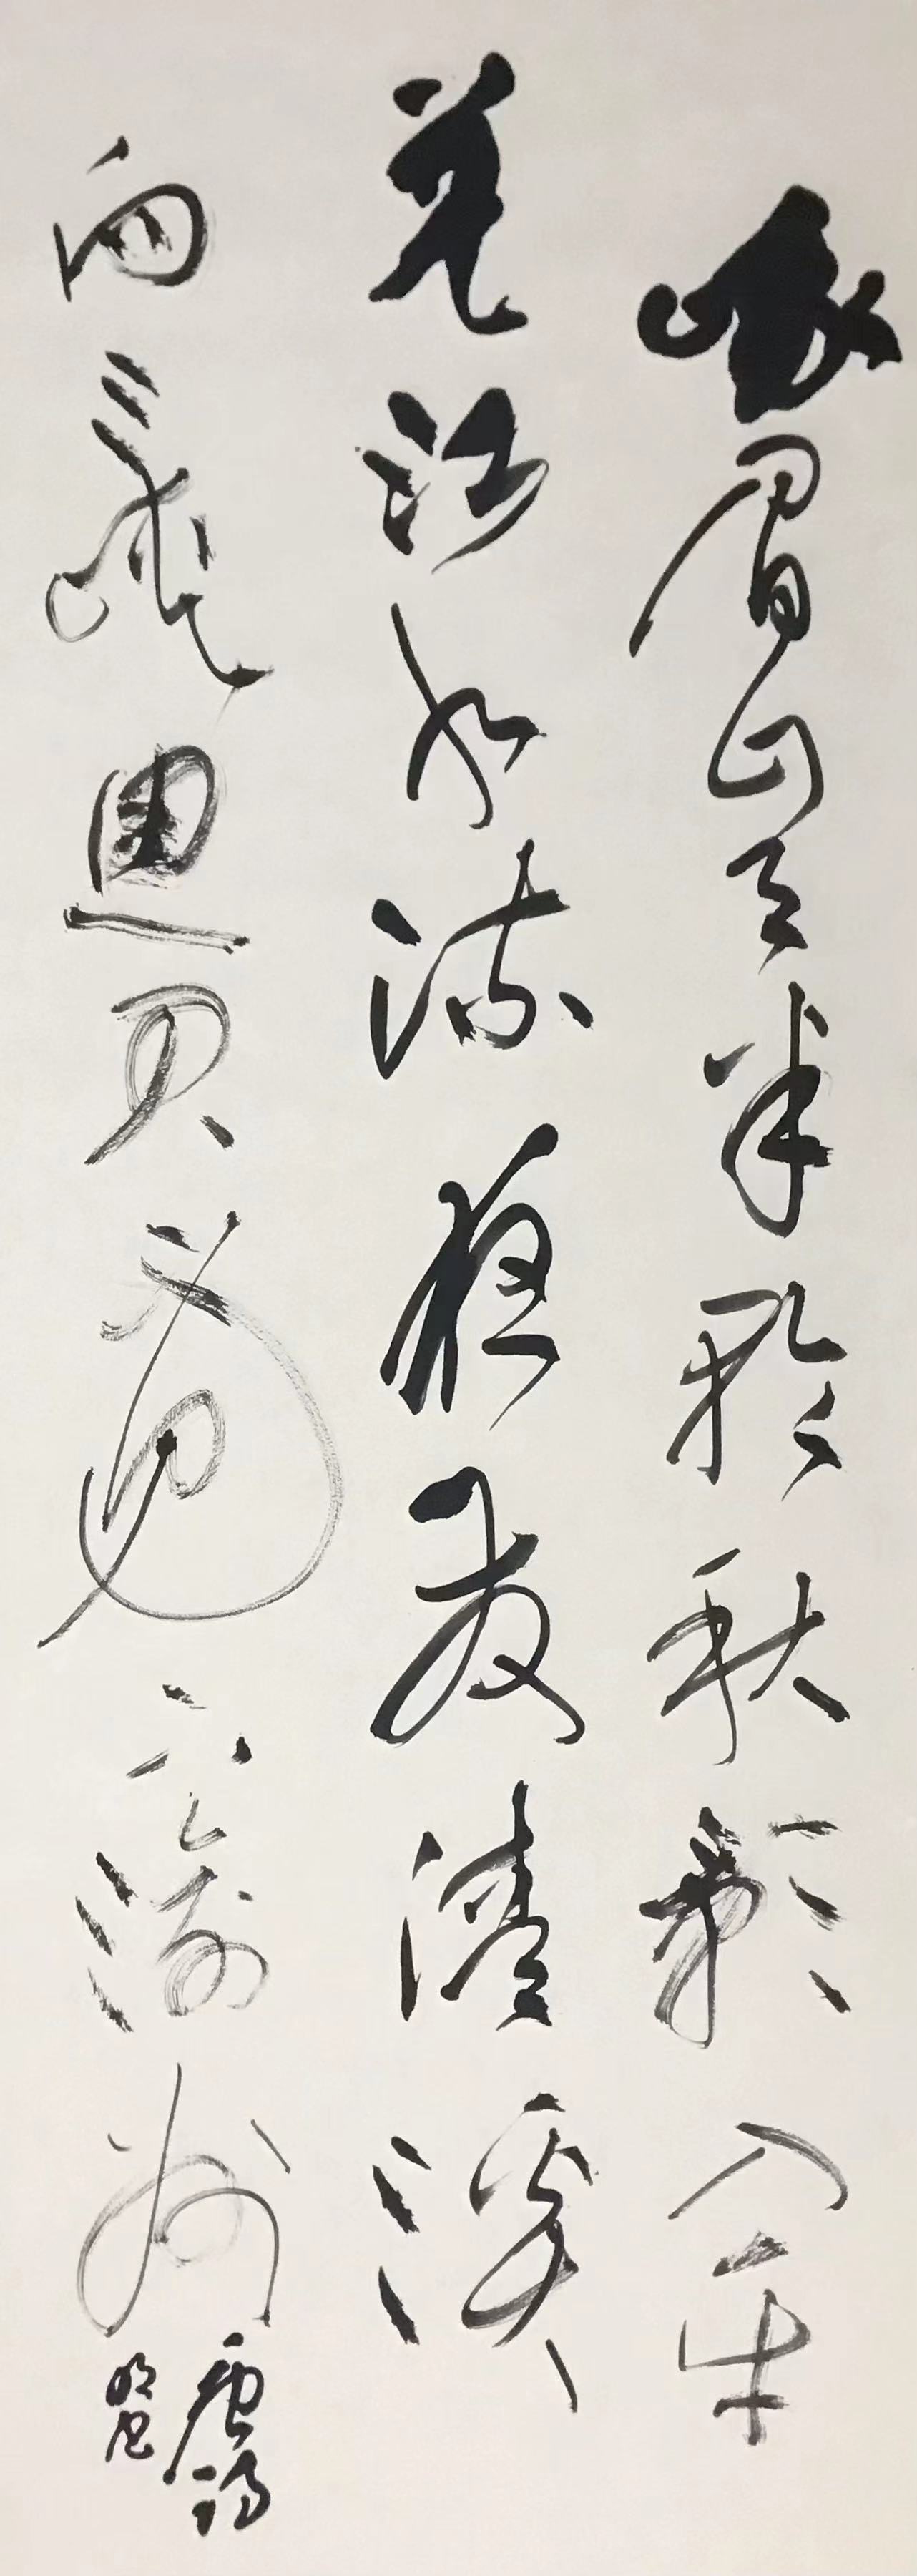 峨眉山月半輪秋影入平
羌江水流夜發清溪
向三峽思君不見下渝州